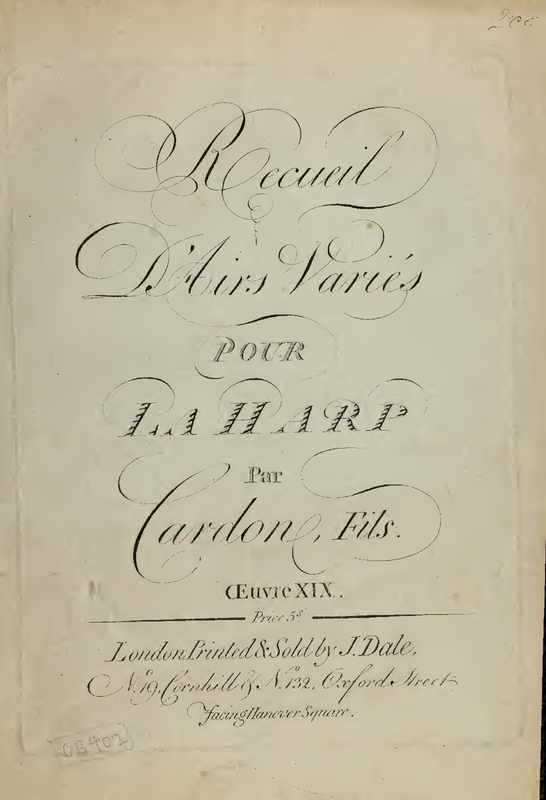 Recueil
D'Airs Variés
POUR
LA HARP
Par
Cardon, Fils.
ŒuvreXIX.
Price 5s
London, Printed & Sold by J. Dale,
No. 19, Cornhill & No. 132, Oxford Street
facing Hanover Square.
OB 402